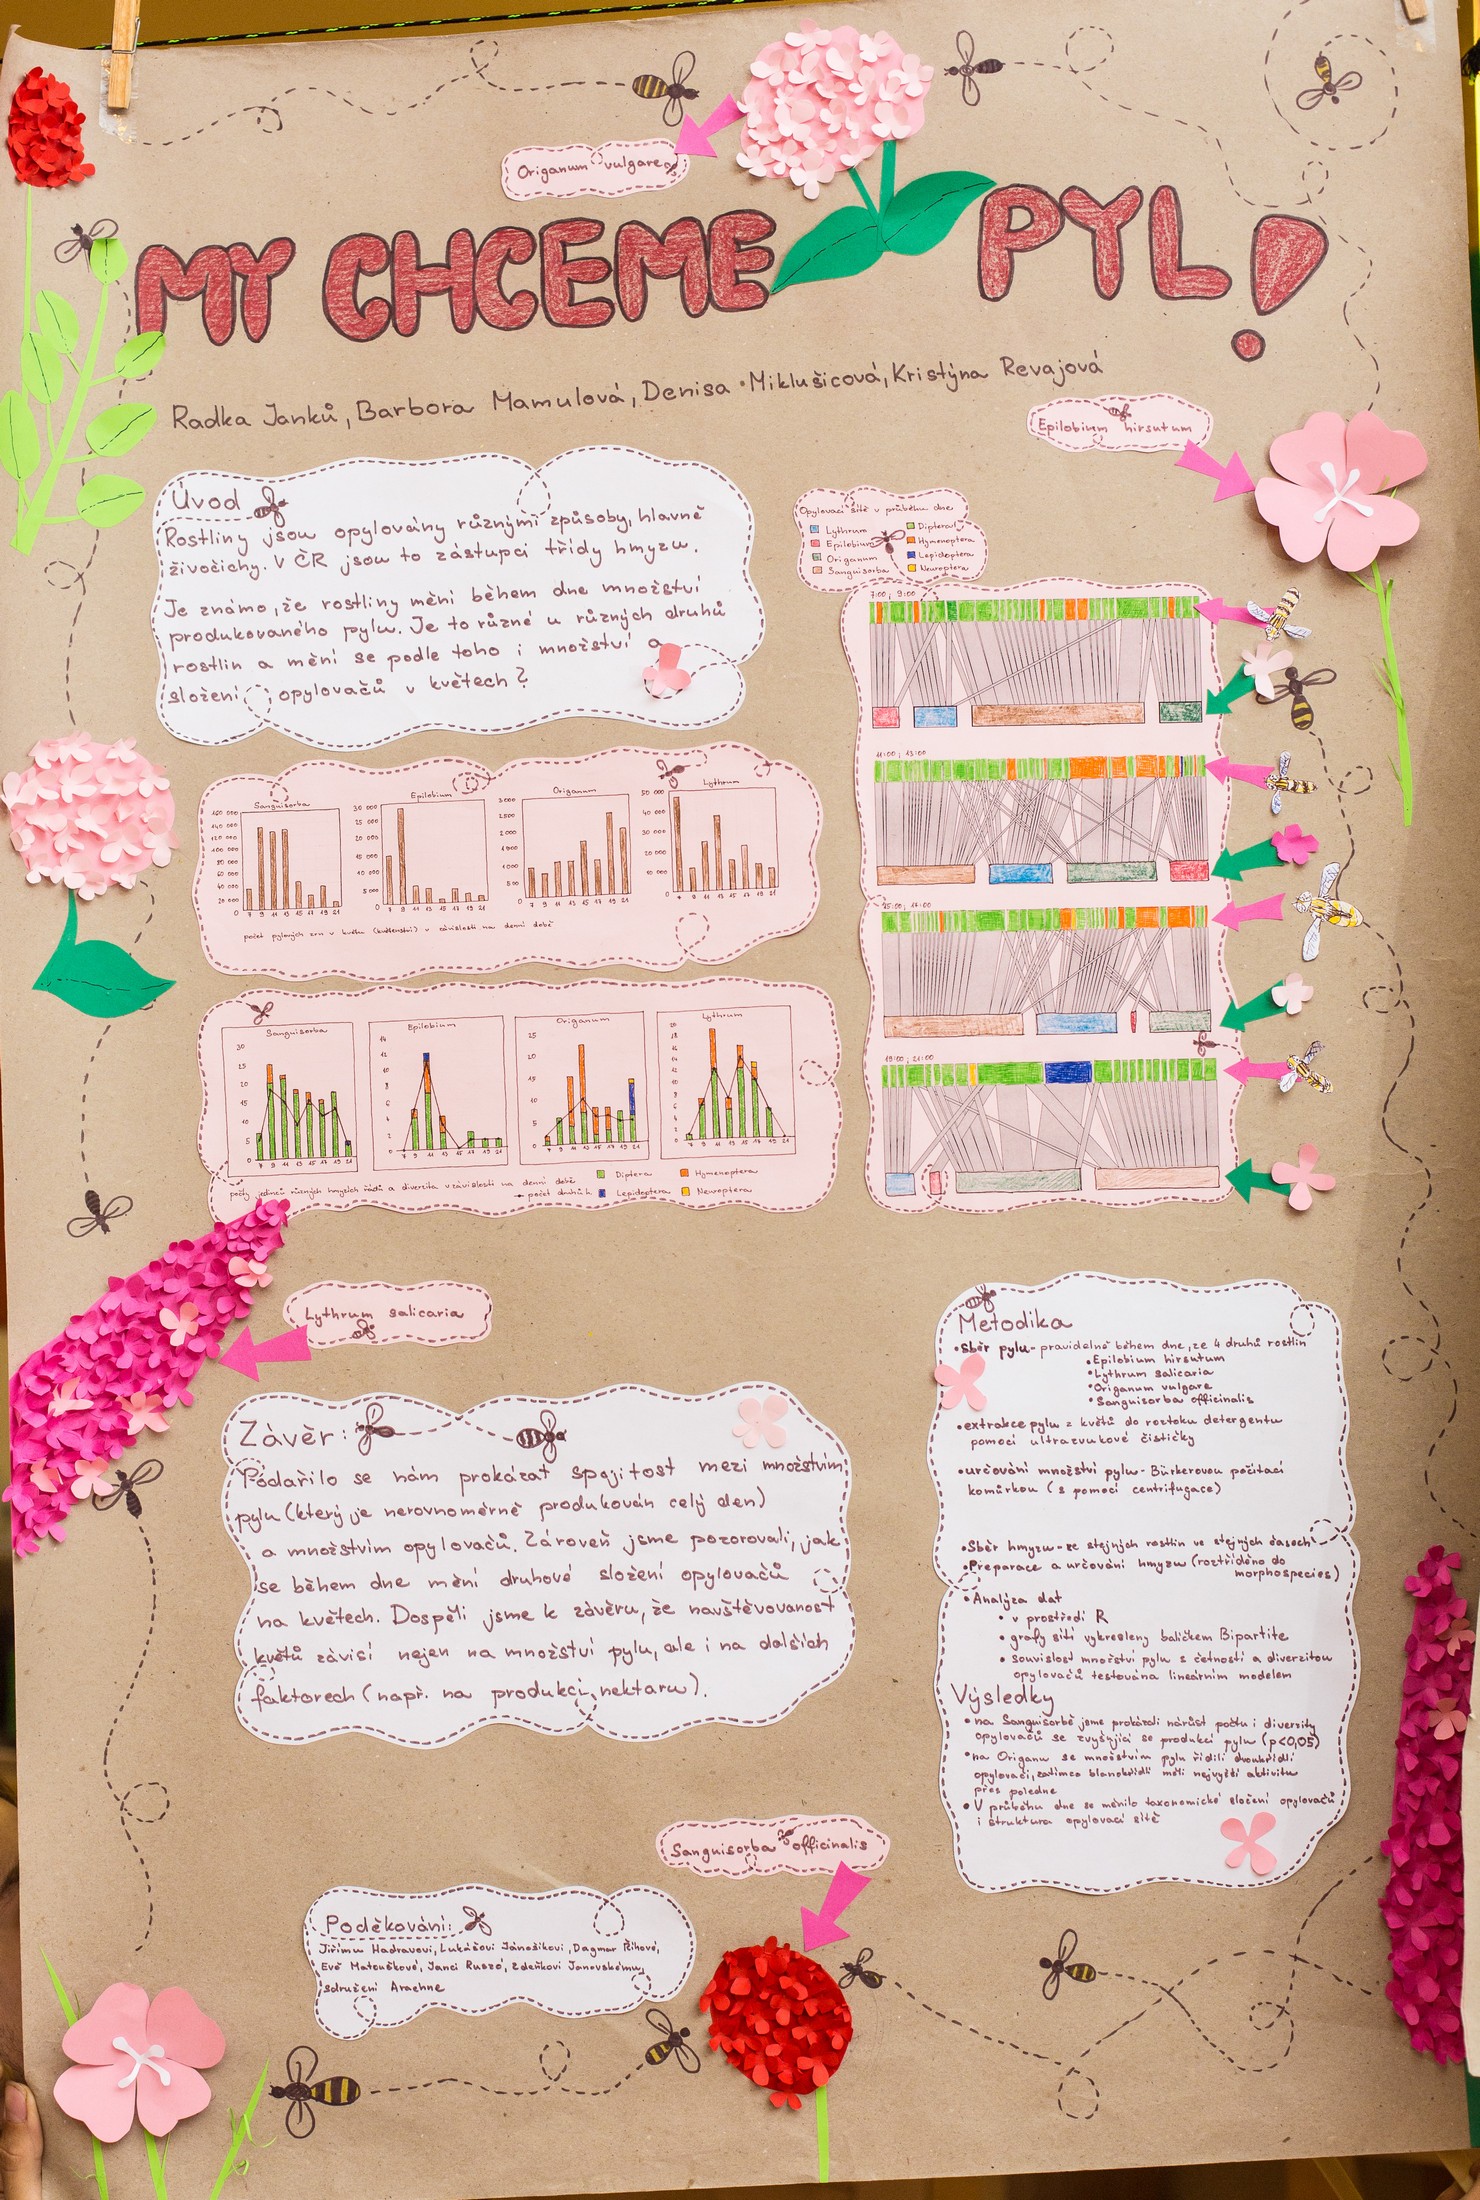 Origanum vulgare
MY CHCEME PYL!
Radka Janků, Barbora Mamulová, Denisa Miklušicová, Kristýna Revajová
Epilobium hirsutum
Úvod
Rostliny jsou opylovány různými způsoby, hlavně
živočichy. V ČR jsou to zástupci třídy hmyzu.
Je známo, že rostliny mění během dne množství
produkovaného pylu. Je to různé u různých druhů
rostlin a mění se podle toho i množství a
složení opylovačů v květech?
Opylovací sítě v průběhu dne
Lythrum
Epilobium
Origanum
Sanguisorba
Diptera
Hymenoptera
Lepidoptera
Neuroptera
7:00 ; 9:00
11:00 ; 13:00
15:00 ; 17:00
19:00 ; 21:00
Sanguisorba
160 000
140 000
120 000
100 000
80 000
60 000
40 000
20 000
0
7 9 11 13 15 17 19 21
Epilobium
30 000
25 000
20 000
15 000
10 000
5 000
0
7 9 11 13 15 17 19 21
Origanum
3000
2500
2 000
1500
1000
500
0
7 9 11 13 15 17 19 21
Lythrum
50 000
40 000
30 000
20 000
10 000
0
7 9 11 13 15 17 19 21
počet pylových zrn v květu (květenství) v závislosti na denní době
Sanguisorba
30
25
20
15
10
5
0
7 9 11 13 15 17 19 21
Epilobium
14
12
10
8
6
4
2
0
7 9 11 13 15 17 19 21
Origanum
25
20
15
10
5
0
7 9 11 13 15 17 19 21
Lythrum
20
18
16
14
12
10
8
6
4
2
0
7 9 11 13 15 17 19 21
počty jedinců různých hmyzích řádů a diverzita v závislosti na denní době
počet druhů h.
Diptera
Hymenoptera
Lepidoptera
Neuroptera
Lythrum salicaria
Závěr:
Podařilo se nám prokázat spojitost mezi množstvím
pylu (který je nerovnoměrně produkován celý den)
a množstvím opylovačů. Zároveň jsme pozorovali, jak
se během dne mění druhové složení opylovačů
na květech. Dospěli jsme k závěru, že navštěvovanost
květů závisí nejen na množství pylu, ale i na dalších
faktorech (např. na produkci nektaru).
Metodika
•Sběr pylu - pravidelně během dne, ze 4 druhů rostlin
•Epilobium hirsutum
•Lythrum salicaria
•Origanum vulgare
•Sanguisorba officinalis
•extrakce pylu z květů do roztoku detergentu
pomocí ultrazvukové čističky
•určování množství pylu - Bürkerovou počítací
komůrkou (s pomocí centrifugace)
•Sběr hmyzu - ze stejných rostlin ve stejných časech
•Preparace a určování hmyzu (roztříděno do
morphospecies)
•Analýza dat
• v prostředí R
• grafy sítí vykresleny balíčkem Bipartite
• souvislost množství pylu s četností a diverzitou
opylovačů testována lineárním modelem
Výsledky
•na Sanguisorbě jsme prokázali nárůst počtu i diverzity
opylovačů se zvyšující se produkcí pylu (p<0,05)
•na Origanu se množstvím pylu řídili dvoukřídlí
opylovači, zatímco blanokřídlí měli nejvyšší aktivitu
přes poledne
•V průběhu dne se měnilo taxonomické složení opylovačů
i struktura opylovací sítě
Sanguisorba officinalis
Poděkování:
Jiřímu Hadravovi, Lukášovi Jánošíkovi, Dagmar Říhové,
Evě Matouškové, Janci Ruszó, Zdeňkovi Janovskému,
sdružení Arachne